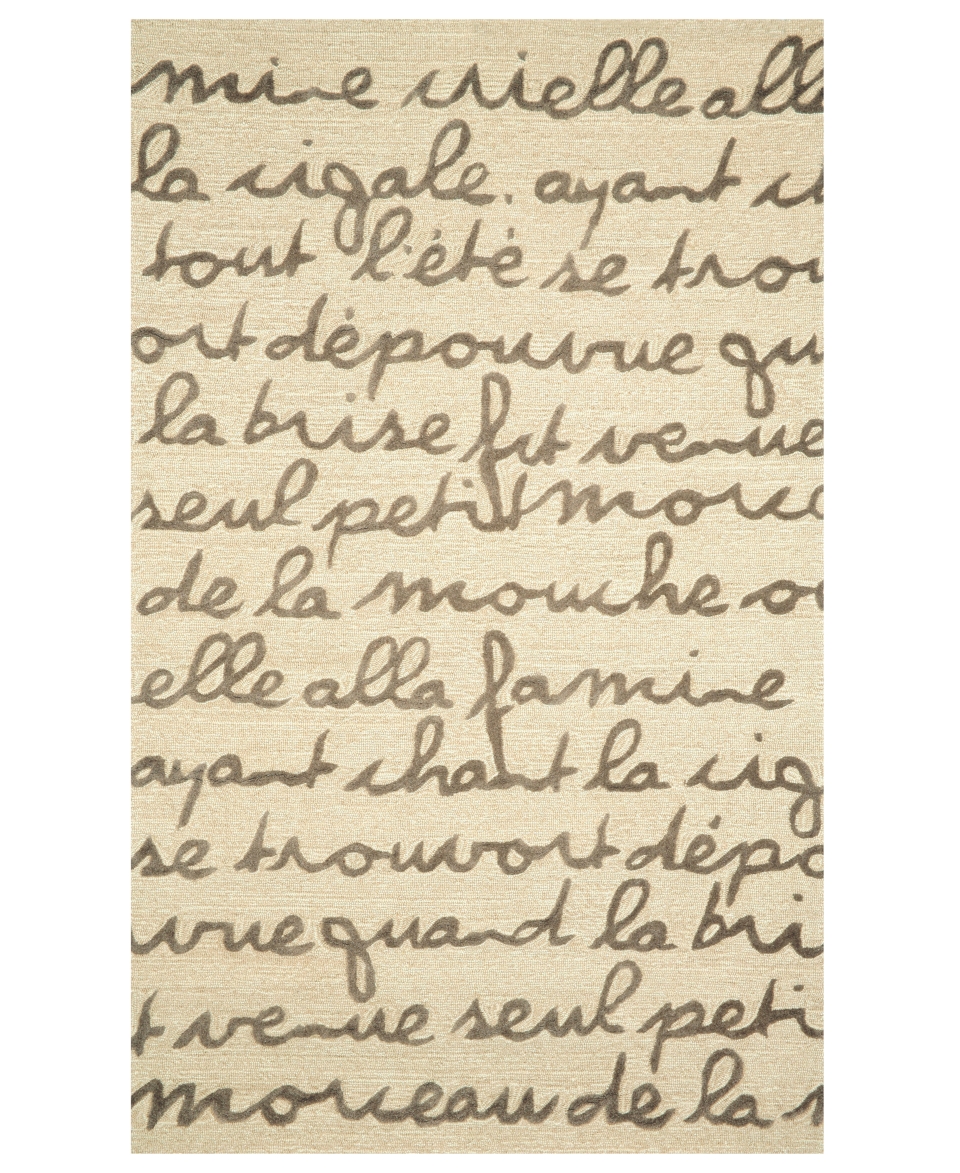 mine crielle alla
la cigale. ayant c
tout l'été se trou
ort dépouvue qu
la brise fut venue
seul petit morce
de la mouche ou
elle alla famine
ayant chant la cig
se trouvort dépo
uvue quand la bri
t venue seul petit
morceau de la